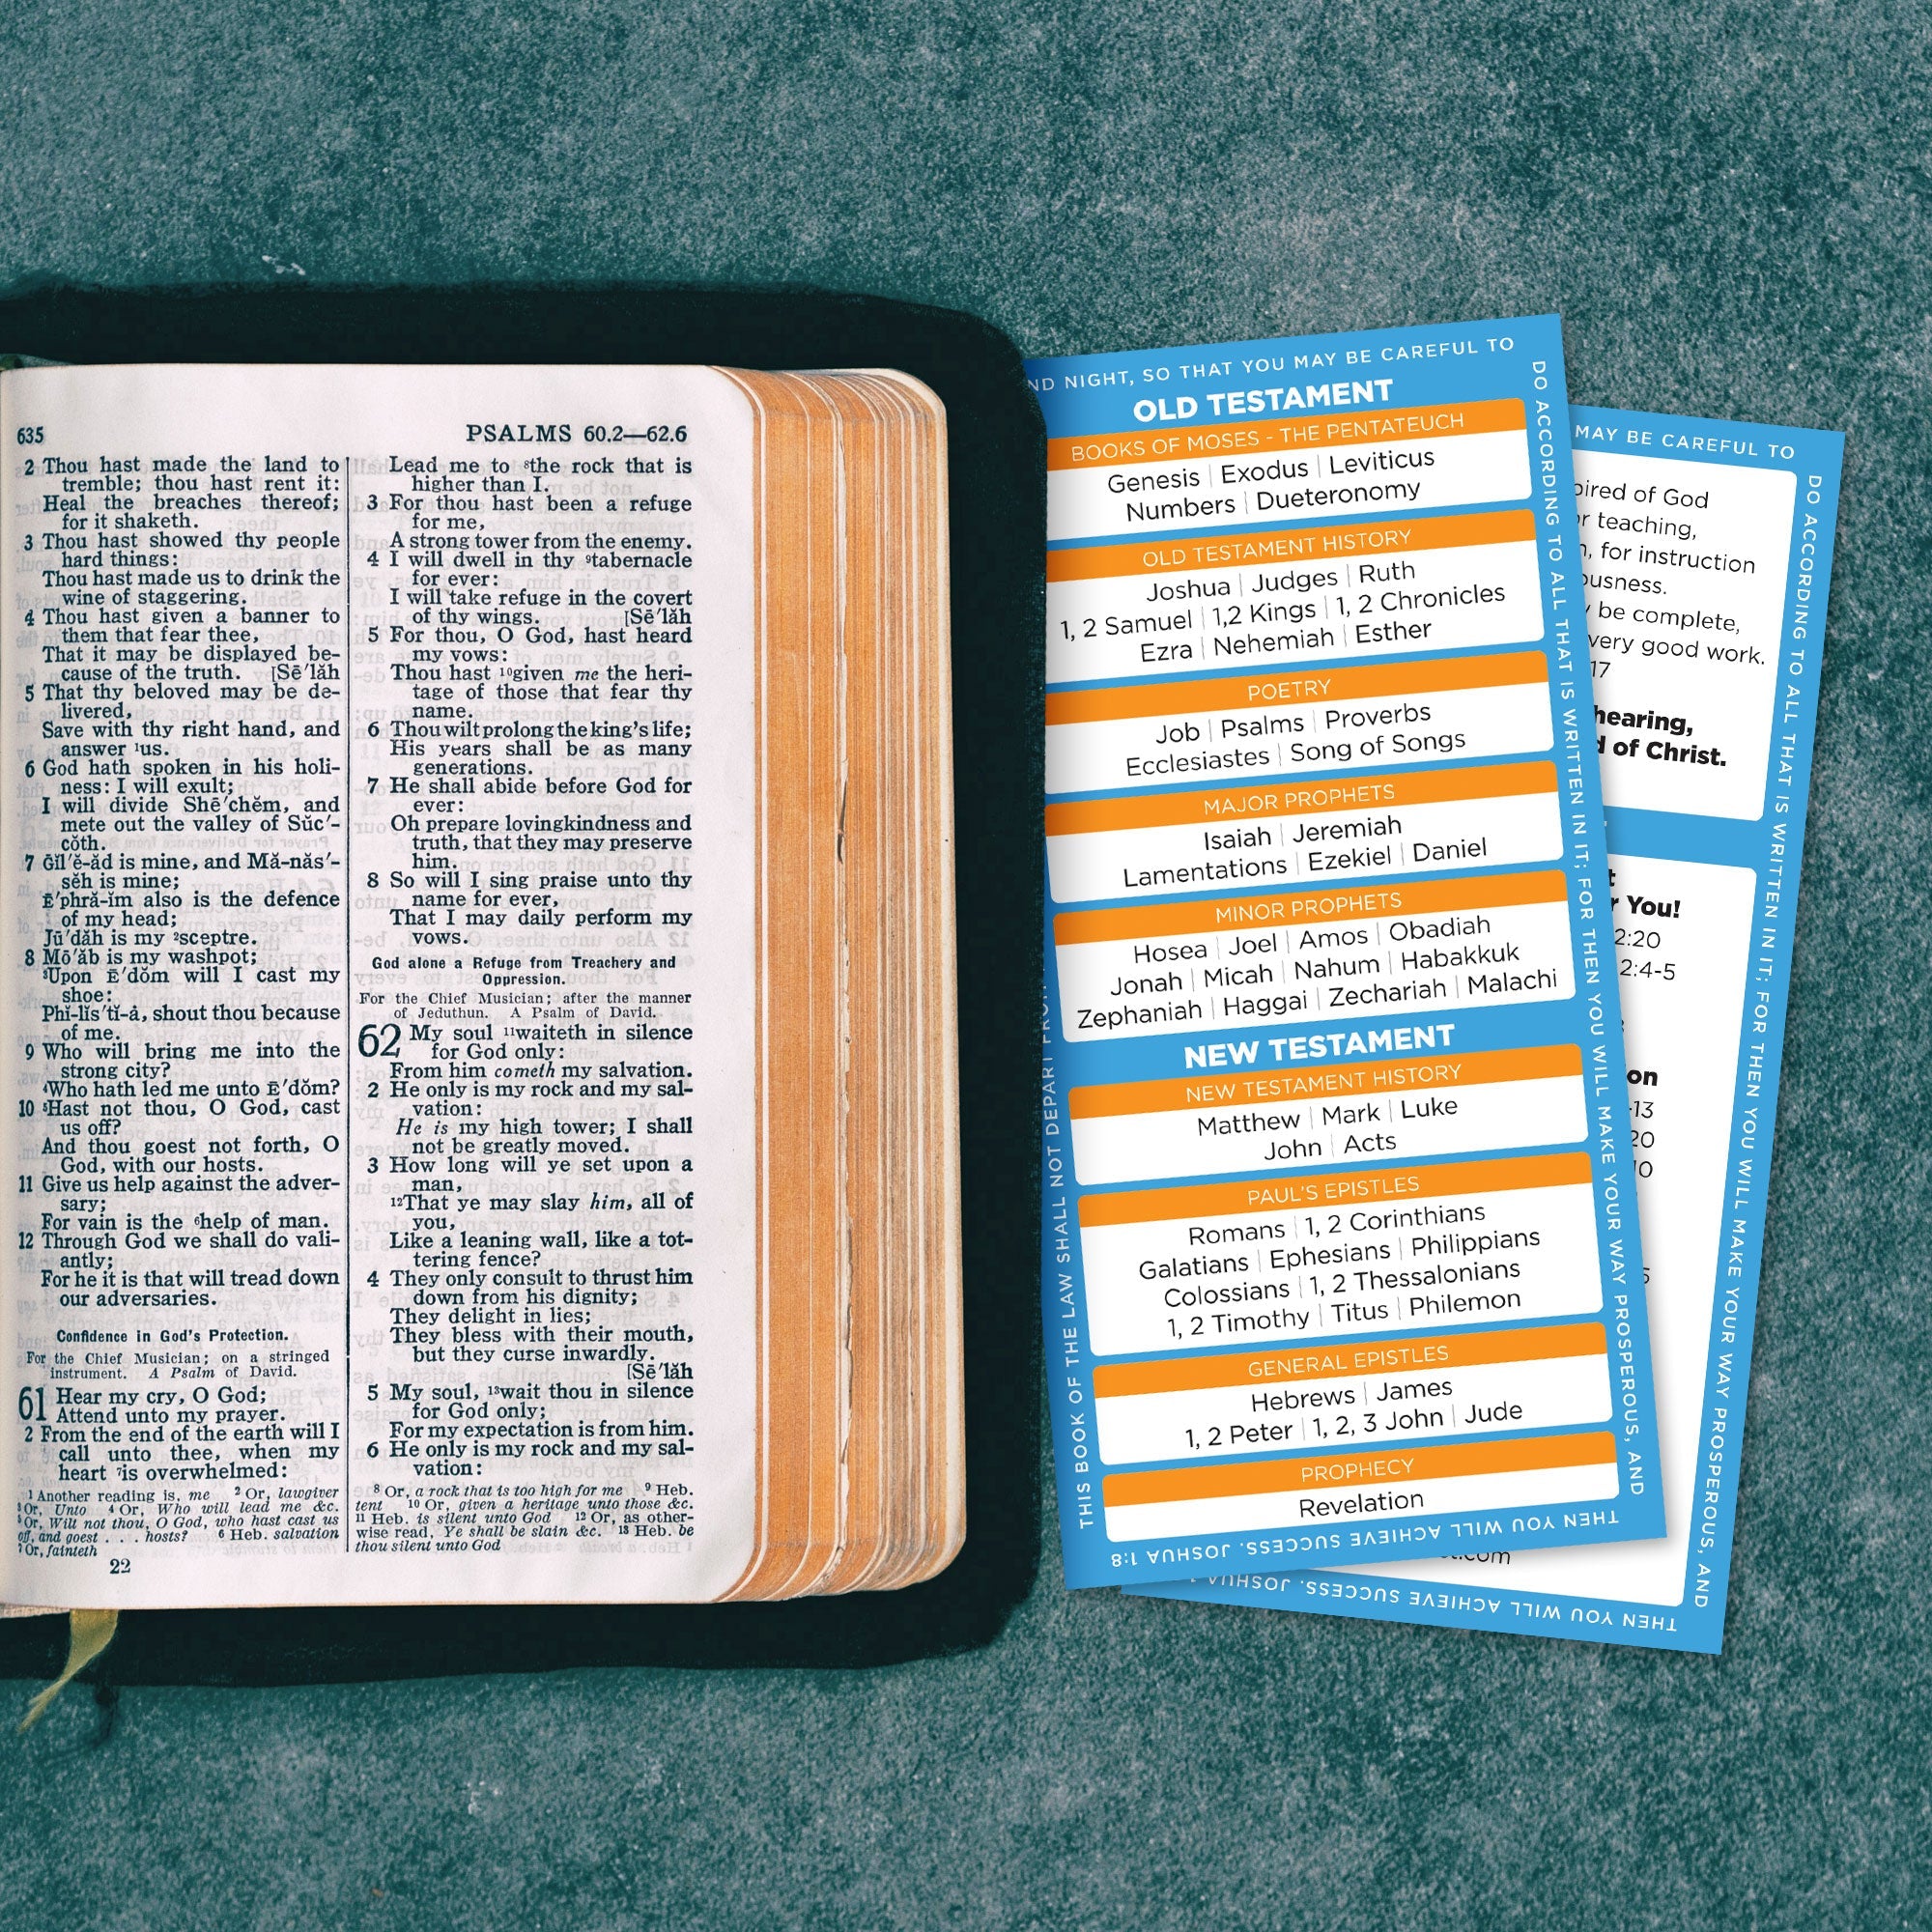 635
PSALMS 60.2—62.6
2 Thou hast made the land to
tremble; thou hast rent it:
Heal the breaches thereof;
for it shaketh.
3 Thou hast showed thy people
hard things:
Thou hast made us to drink the
wine of staggering.
4 Thou hast given a banner to
them that fear thee,
That it may be displayed be-
cause of the truth. [Sē′lăh
5 That thy beloved may be de-
livered,
Save with thy right hand, and
answer ¹us.
6 God hath spoken in his holi-
ness: I will exult;
I will divide Shē′chĕm, and
mete out the valley of Sŭc′-
cŏth.
7 Gĭl′ĕ-ăd is mine, and Mă-năs′-
sĕh is mine;
Ē′phră-ĭm also is the defence
of my head;
Jū′dăh is my ²sceptre.
8 Mō′ăb is my washpot;
³Upon Ē′dŏm will I cast my
shoe:
Phĭ-lĭs′tĭ-ȧ, shout thou because
of me.
9 Who will bring me into the
strong city?
⁴Who hath led me unto Ē′dŏm?
10 ⁵Hast not thou, O God, cast
us off?
And thou goest not forth, O
God, with our hosts.
11 Give us help against the adver-
sary;
For vain is the ⁶help of man.
12 Through God we shall do vali-
antly;
For he it is that will tread down
our adversaries.
Confidence in God's Protection.
For the Chief Musician; on a stringed
instrument. A Psalm of David.
61 Hear my cry, O God;
Attend unto my prayer.
2 From the end of the earth will I
call unto thee, when my
heart ⁷is overwhelmed:
¹ Another reading is, me ² Or, lawgiver
³ Or, Unto ⁴ Or, Who will lead me &c.
⁵ Or, Wilt not thou, O God, who hast cast us
off, and goest . . . hosts? ⁶ Heb. salvation
⁷ Or, fainteth
22
Lead me to ⁸the rock that is
higher than I.
3 For thou hast been a refuge
for me,
A strong tower from the enemy.
4 I will dwell in thy ⁹tabernacle
for ever:
I will take refuge in the covert
of thy wings. [Sē′lăh
5 For thou, O God, hast heard
my vows:
Thou hast ¹⁰given me the heri-
tage of those that fear thy
name.
6 Thou wilt prolong the king's life;
His years shall be as many
generations.
7 He shall abide before God for
ever:
Oh prepare lovingkindness and
truth, that they may preserve
him.
8 So will I sing praise unto thy
name for ever,
That I may daily perform my
vows.
God alone a Refuge from Treachery and
Oppression.
For the Chief Musician; after the manner
of Jeduthun. A Psalm of David.
62 My soul ¹¹waiteth in silence
for God only:
From him cometh my salvation.
2 He only is my rock and my sal-
vation:
He is my high tower; I shall
not be greatly moved.
3 How long will ye set upon a
man,
¹²That ye may slay him, all of
you,
Like a leaning wall, like a tot-
tering fence?
4 They only consult to thrust him
down from his dignity;
They delight in lies;
They bless with their mouth,
but they curse inwardly.
[Sē′lăh
5 My soul, ¹³wait thou in silence
for God only;
For my expectation is from him.
6 He only is my rock and my sal-
vation:
⁸ Or, a rock that is too high for me ⁹ Heb.
tent ¹⁰ Or, given a heritage unto those &c.
¹¹ Heb. is silent unto God ¹² Or, as other-
wise read, Ye shall be slain &c. ¹³ Heb. be
thou silent unto God
NIGHT, SO THAT YOU MAY BE CAREFUL TO
DO ACCORDING TO ALL THAT IS WRITTEN IN IT; FOR THEN YOU WILL MAKE YOUR WAY PROSPEROUS, AND
THEN YOU WILL ACHIEVE SUCCESS. JOSHUA 1:8
THIS BOOK OF THE LAW SHALL NOT DEPART FROM
OLD TESTAMENT
BOOKS OF MOSES - THE PENTATEUCH
Genesis | Exodus | Leviticus
Numbers | Dueteronomy
OLD TESTAMENT HISTORY
Joshua | Judges | Ruth
1, 2 Samuel | 1,2 Kings | 1, 2 Chronicles
Ezra | Nehemiah | Esther
POETRY
Job | Psalms | Proverbs
Ecclesiastes | Song of Songs
MAJOR PROPHETS
Isaiah | Jeremiah
Lamentations | Ezekiel | Daniel
MINOR PROPHETS
Hosea | Joel | Amos | Obadiah
Jonah | Micah | Nahum | Habakkuk
Zephaniah | Haggai | Zechariah | Malachi
NEW TESTAMENT
NEW TESTAMENT HISTORY
Matthew | Mark | Luke
John | Acts
PAUL'S EPISTLES
Romans | 1, 2 Corinthians
Galatians | Ephesians | Philippians
Colossians | 1, 2 Thessalonians
1, 2 Timothy | Titus | Philemon
GENERAL EPISTLES
Hebrews | James
1, 2 Peter | 1, 2, 3 John | Jude
PROPHECY
Revelation
MAY BE CAREFUL TO
DO ACCORDING TO ALL THAT IS WRITTEN IN IT; FOR THEN YOU WILL MAKE YOUR WAY PROSPEROUS, AND
THEN YOU WILL ACHIEVE SUCCESS. JOSHUA
of God
teaching,
for instruction
be complete,
good work.
17
hearing,
of Christ.
You!
2:20
2:4-5
on
-13
20
10
.com